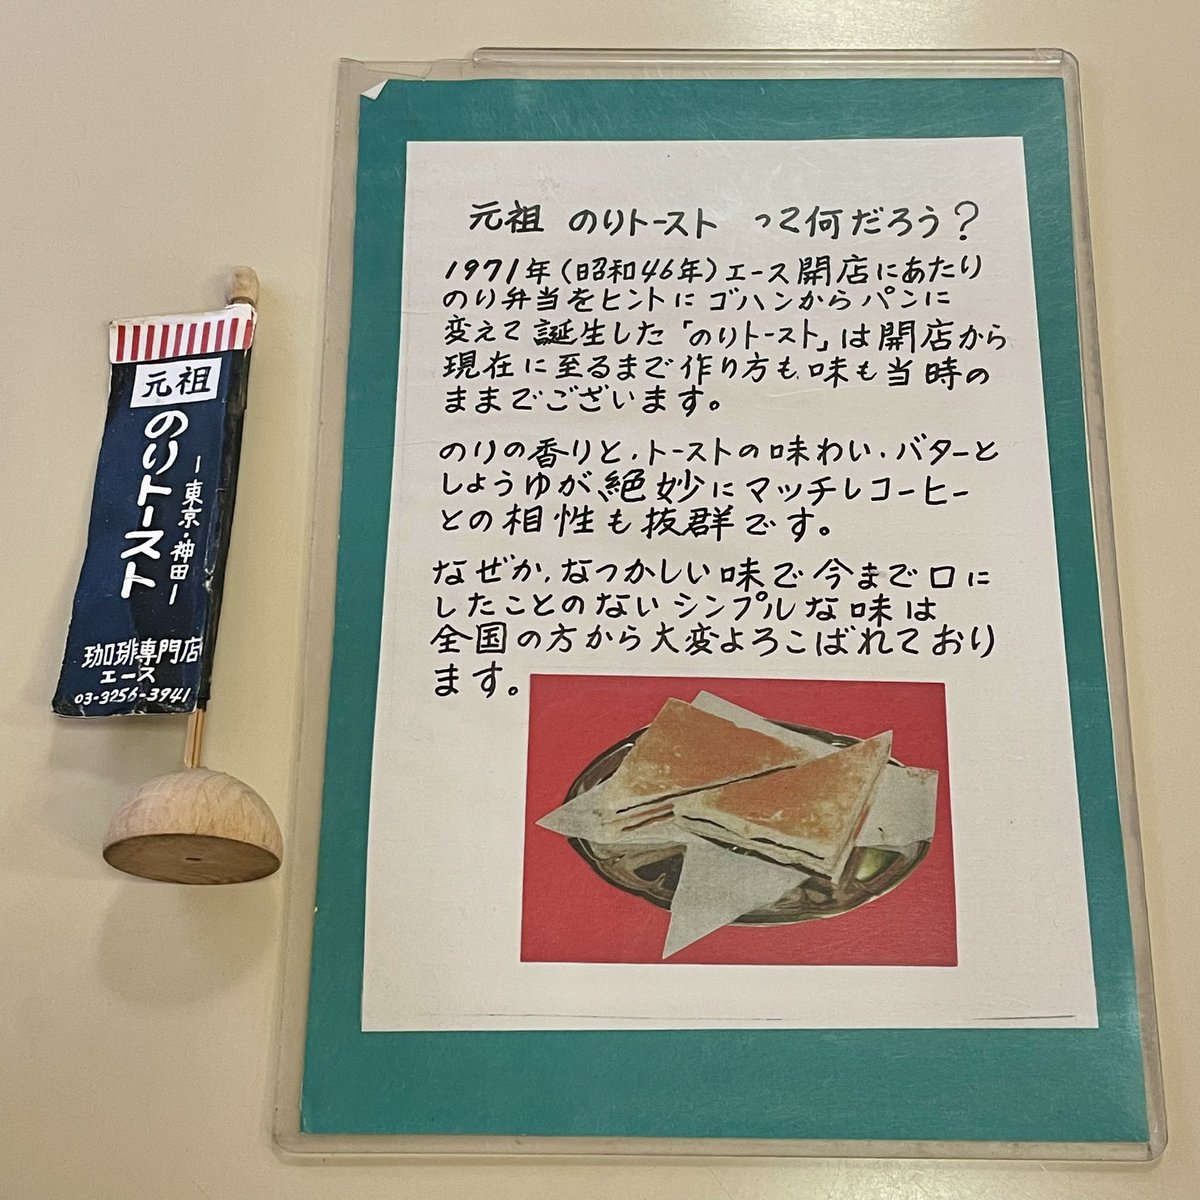 元祖
のりトースト
ー東京・神田ー
珈琲専門店
エース
03-3256-3941
元祖 のりトースト って何だろう?
1971年(昭和46年)エース開店にあたり
のり弁当をヒントに ゴハンからパンに
変えて誕生した「のりトースト」は開店から
現在に至るまで作り方も味も当時の
ままでございます。
のりの香りと、トーストの味わい、バターと
しょうゆが、絶妙にマッチしコーヒー
との相性も抜群です。
なぜか、なつかしい味で今まで口に
したことのないシンプルな味は
全国の方から大変よろこばれており
ます。